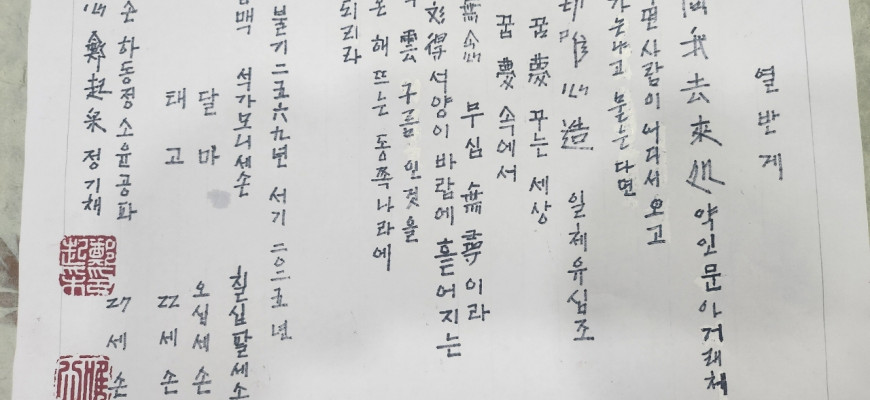 열반게
問我去來処 약인문아거래처
떤 사람이 어디서 오고
가는냐고 물는다면
切唯心造 일체유심조
꿈 夢 꾸는 세상
꿈 夢 속에서
無念 무심 無夢이라
서양이 바람에 흩어지는
雲 구름인것을
해 뜨는 동쪽나라에
되리라
불기 二五六九년 서기 二〇二五년
맥 석가모니세손 칠십팔세손
달마 오십세손
태고 22세손
손 하동정 소윤공파
鄭起采 정기채 27세손